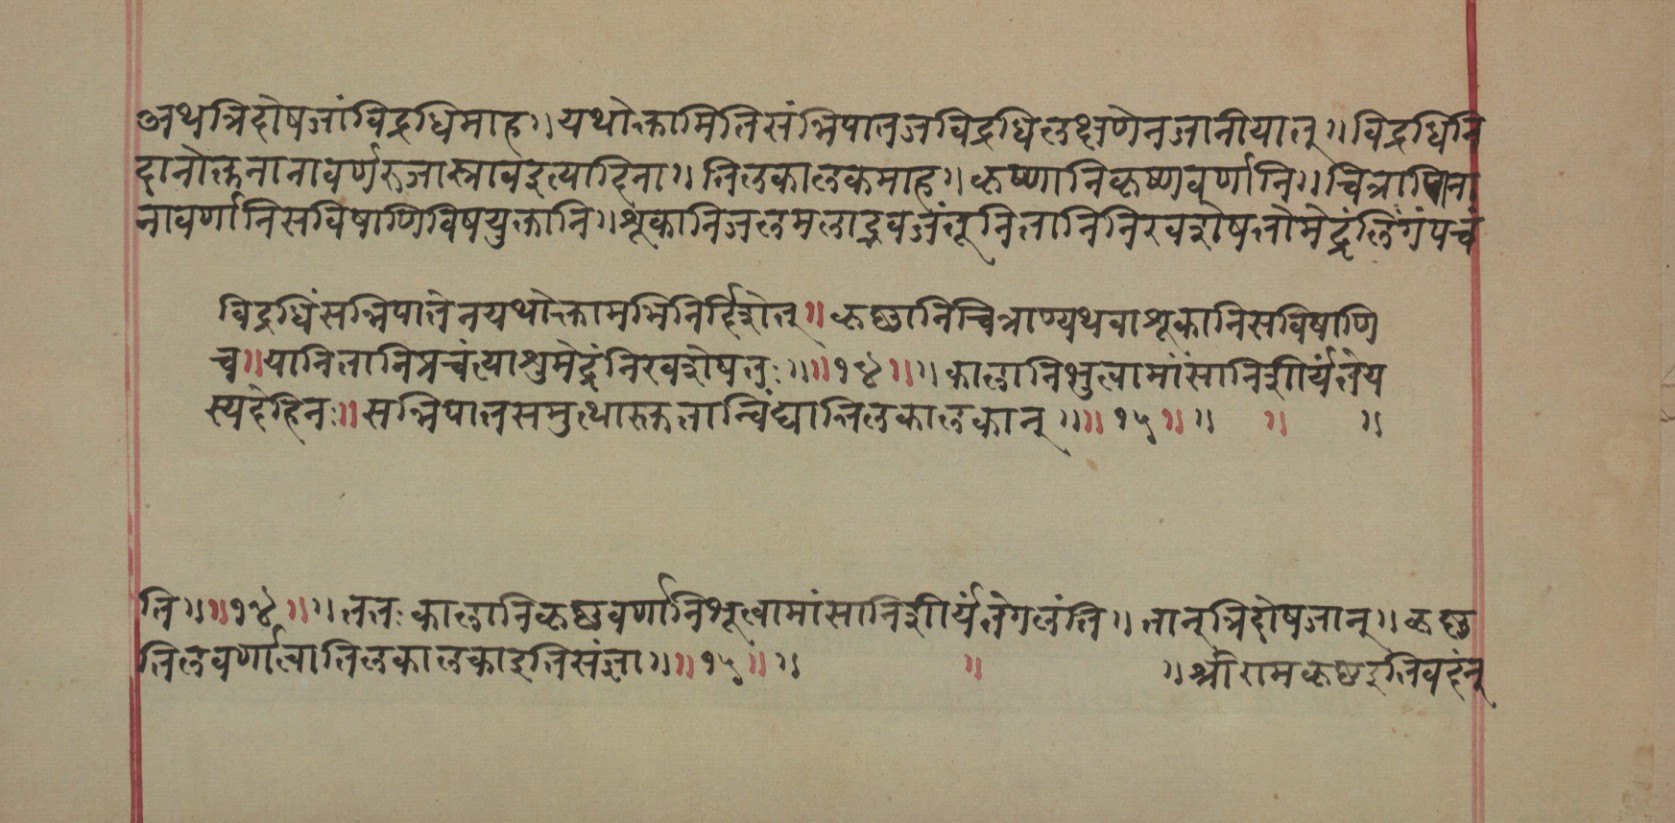 अथत्रिदोषजांविद्रधिमाह॥यथोक्तामितिसंन्निपातजविद्रधिलक्षणेनजानीयात्॥विद्रधिनि
दानोक्तनानावर्णरुजास्त्रावइत्यादिना॥तिलकालकमाह॥कृष्णानिकृष्णवर्णानि॥चित्राणिना
नावर्णानिसविषाणिविषयुक्तानि॥शूकानिजलमलोद्भवजंतूनितानिनिरवशेषतोमेढ्रंलिंगंपचं
विद्रधिंसन्निपातेनयथोक्तामभिनिर्दिशेत्॥कृष्णानिचित्राण्यथवाशूकानिसविषाणि
च॥यानितानिप्रचंत्याशुमेढ्रंनिरवशेषतः॥॥१४॥॥कालानिभुत्वामांसानिशीर्यंतेय
स्यदेहिनः॥सन्निपातसमुत्थांस्तुतान्विंद्यात्तिलकालकान्॥॥१५॥॥ ॥ ॥
ति॥॥१४॥॥ततःकालानिकृष्णवर्णानिभूत्वामांसानिशीर्यंतेगलंति॥तान्त्रिदोषजान्॥कृष्ण
तिलवर्णात्वातिलकालकाइतिसंज्ञा॥॥१५॥॥ ॥ ॥श्रीरामकृष्णइतिवदन्